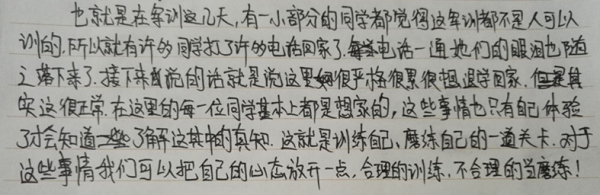 也就是在军训这几天,有一小部分的同学都觉得这军训都不是人可以
训的.所以就有许的同学打了许的电话回家了.每当电话一通她们的眼泪也随
之落下来了.接下来说的话就是说这里很严格很累很想退学回家.但是其
实这很正常.在这里的每一位同学基本上都是想家的,这些事情也只有自己体验
了才会知道了解这其中的真知.这就是训练自己、磨练自己的一道关卡.对于
这些事情我们可以把自己的心态放开一点,合理的训练,不合理的当磨练!